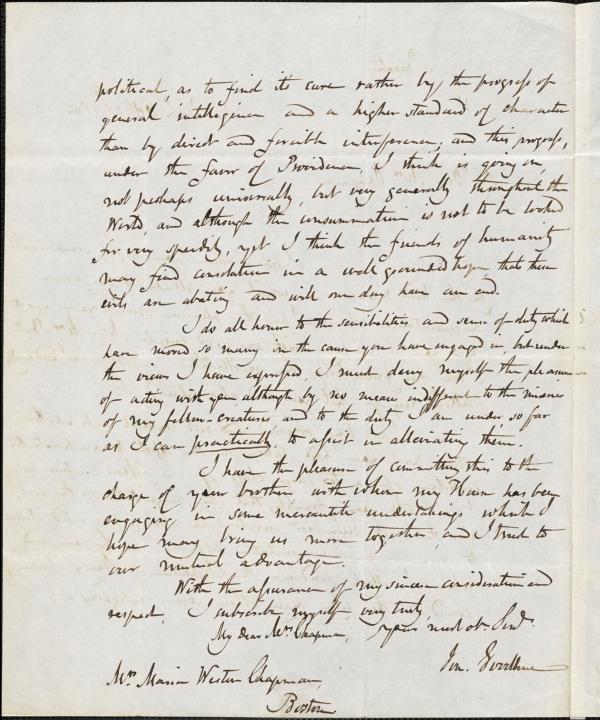 political, as to find it's cure rather by the progress of
general intelligence and a higher standard of character
than by direct and forcible interference, and this progress,
under the favor of Providence, I think is going on,
not perhaps universally, but very generally throughout the
World, and although the consummation is not to be looked
for very speedily, yet I think the friends of humanity
may find consolation in a well grounded hope, that these
evils are abating and will one day have an end.
I do all honor to the sensibilities and sense of duty which
have moved so many in the cause you have engaged in, but under
the views I have expressed, I must deny myself the pleasure
of acting with you although by no means indifferent to the miseries
of my fellow-creatures, and to the duty I am under, so far
as I can practically, to assist in alleviating them.
I have the pleasure of committing this to the
charge of your brother, with whom my House has been
engaging in some mercantile undertakings which I
hope may bring us more together, and I trust to
our mutual advantage.
With the assurance of my sincere consideration and
respect, I subscribe myself, very truly,
My dear Mrs. Chapman, your most obt. Servt.
Jon. Goodhue
Mrs. Maria Weston Chapman,
Boston